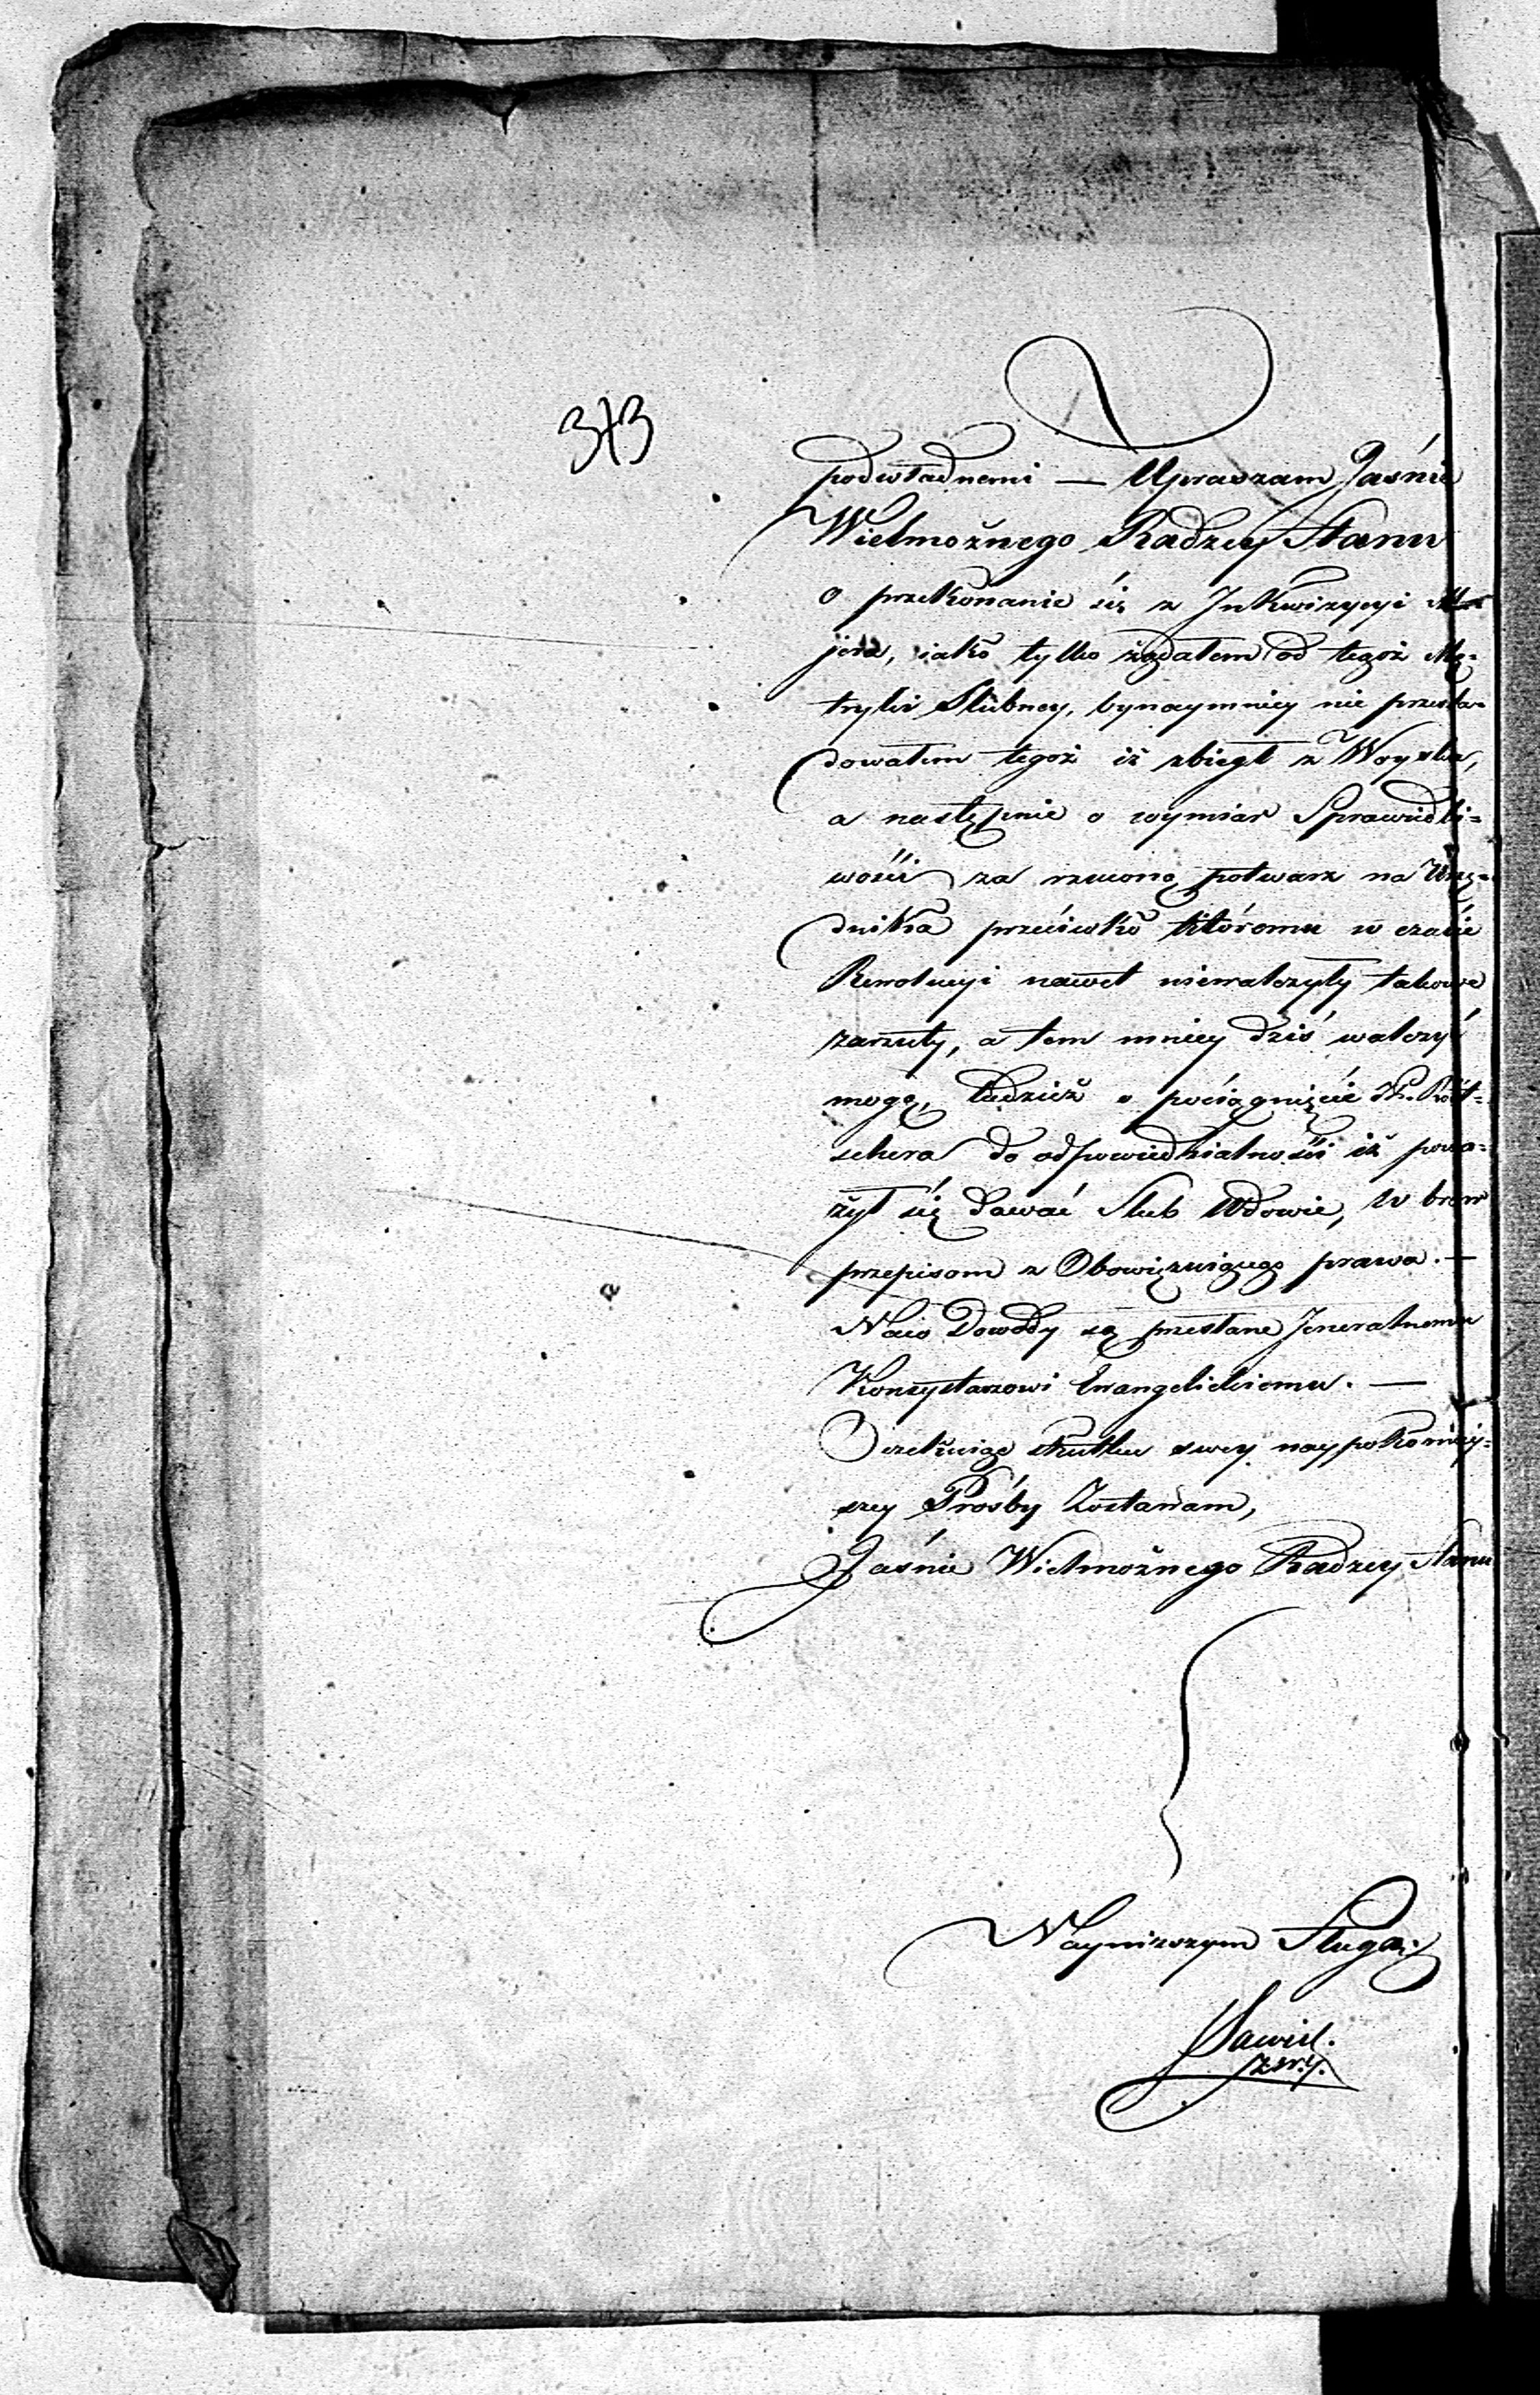 373
podwładnemi — Upraszam Jaśnie
Wielmożnego Radzcy Stanu
o przekonanie się z Inkwizycyi
jera, iako tylko żądałem od tegoż Me=
tryki Slubney, bynaymniey nie prześla=
dowałem tegoż iż zbiegł z Woyska,
a następnie o wymiar Sprawiedli=
wości za rzuconą potwarz na Urzę=
dnika przeciwko któremu w czasie
Rewolucyi nawet niewalczyły takowe
zarzuty, a tem mniey dziś walczyć
mogą, tudzież o pociągnięcie
schera do odpowiedzialności iż powa=
żył się dawać Slub Wdowie, w brew
przepisom z Obowiązuiącego prawa. —
Naco Dowody są przesłane Jeneralnemu
Konsystarzowi Ewangelickiemu. —
Oczekuiąc skutku swey naypokorniey=
szey Prośby Zostawam,
Jaśnie Wielmożnego Radzcy Stanu
Nayniższym Sługą